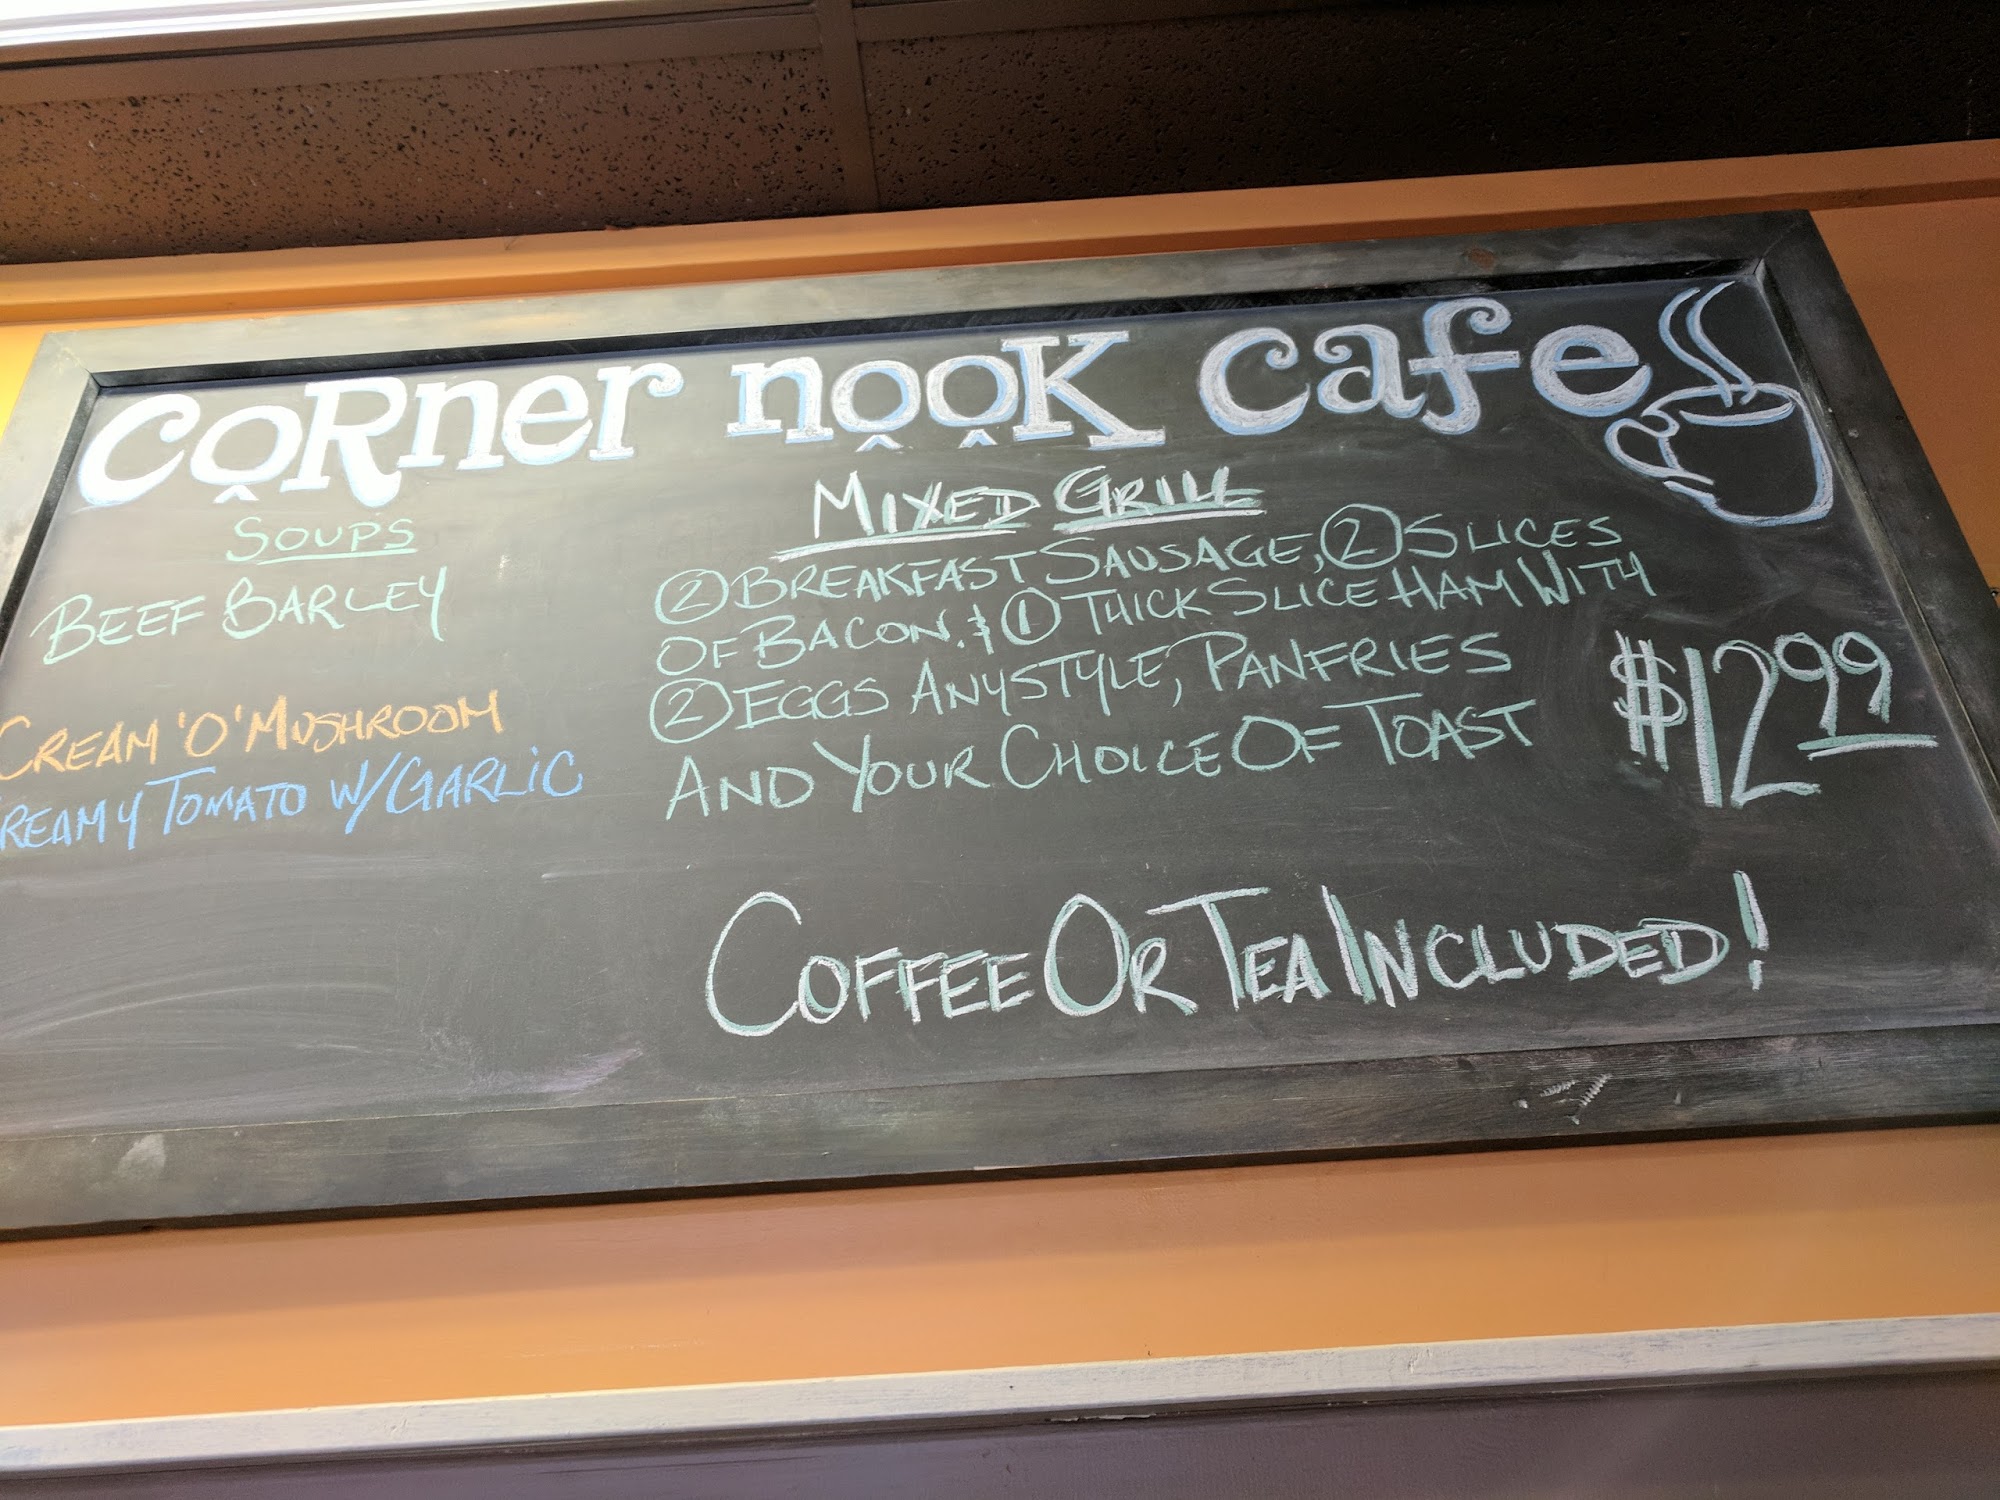 Corner nook cafe
Soups
Beef Barley
Cream 'O' Mushroom
reamy Tomato w/Garlic
Mixed Grill
② Breakfast Sausage, ② Slices
Of Bacon, & ① Thick Slice Ham With
② Eggs Anystyle, Panfries
And Your Choice Of Toast
$12.99
Coffee Or Tea Included!